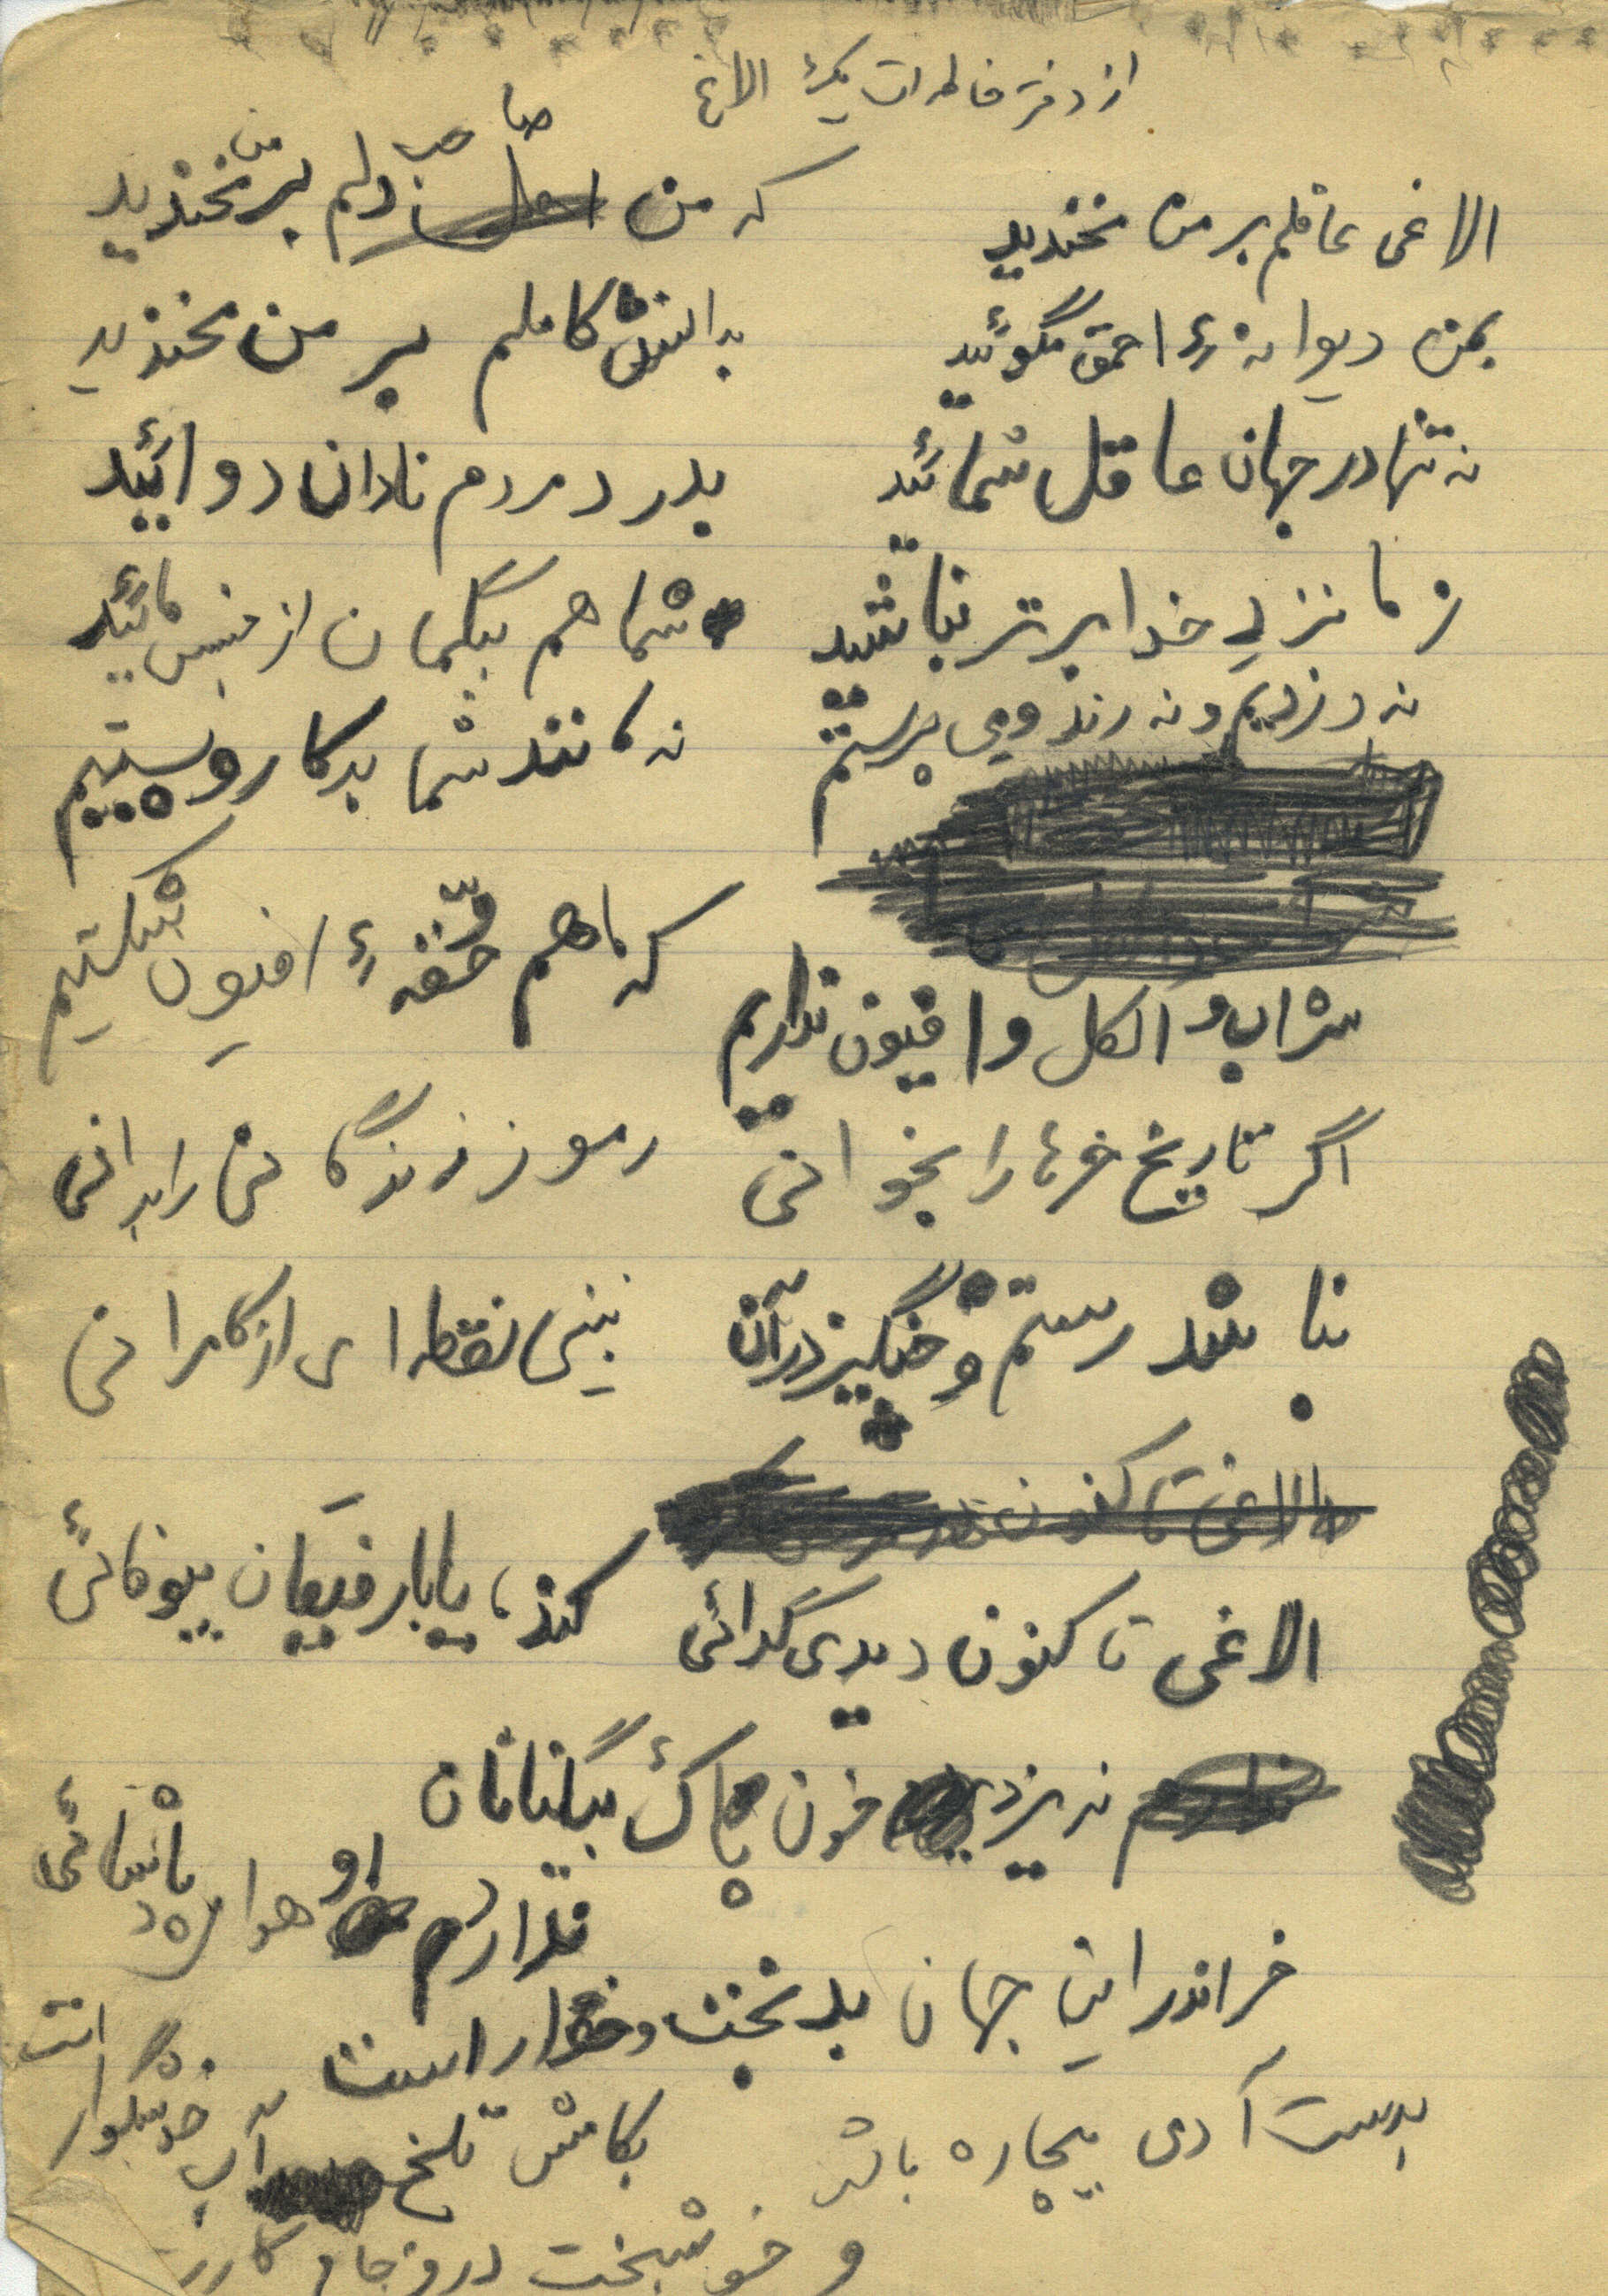 از دفتر خاطرات یک الاغ
الاغی عاقلم بر من نخندید که من صاحب دلم بر من نخندید
بمن دیوانهٔ احمق مگوئید بدانش کاملم بر من نخندید
نه تنها در جهان عاقل شمائید بدرد مردم نادان دوائید
ز ما نزدِ خدا برتر نباشید شما هم بیگمان از جنس مائید
نه دزدیم و نه رند و می پرستیم نه مانند شما بدکار و پستیم
شراب و الکل و افیون نداریم که ما هم حقّهٔ افیون شکستیم
اگر تاریخ خرها را بخوانی رموز زندگانی را بدانی
نباشد رستم و چنگیز در آن ببینی نقطه ای از کامرانی
الاغی تا کنون
الاغی تا کنون دیدی گدائی کند، یا با رفیقان بیوفائی
نریزد خون پاک بیگناهان
ندارد او هوا
خر اندر این جهان بدبخت و خوار است
بدست آدمی بیچاره باشد
بکامش تلخ آب خوشگوار است
و خوشبخت در